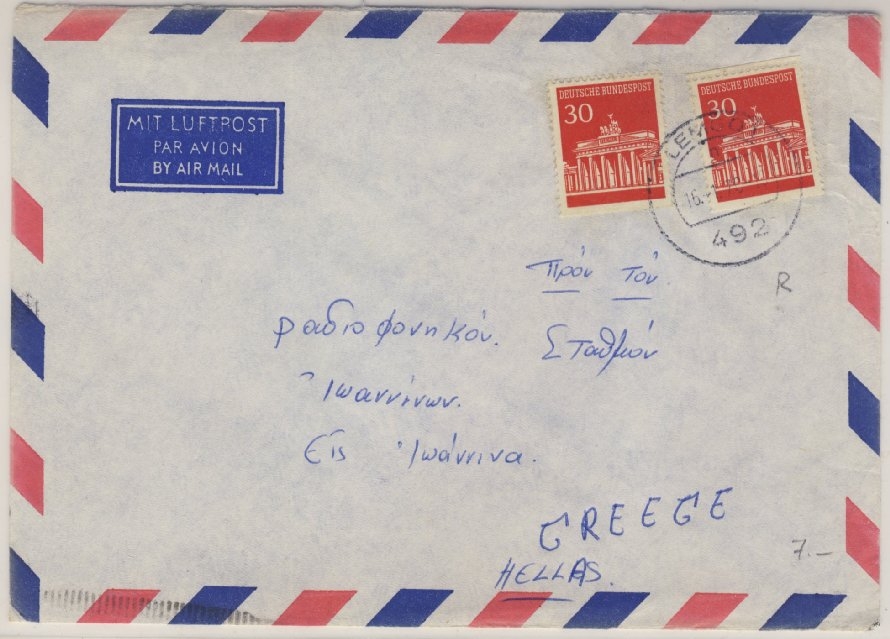 MIT LUFTPOST
PAR AVION
BY AIR MAIL
DEUTSCHE BUNDESPOST
30
DEUTSCHE BUNDESPOST
30
LEMGO
492
Πρόν τόν
ραδιοφονηκόν. Σταθμόν
Ἰωαννίνων.
Εἰς Ἰωάννινα.
R
GREEGE
HELLAS.
7.—